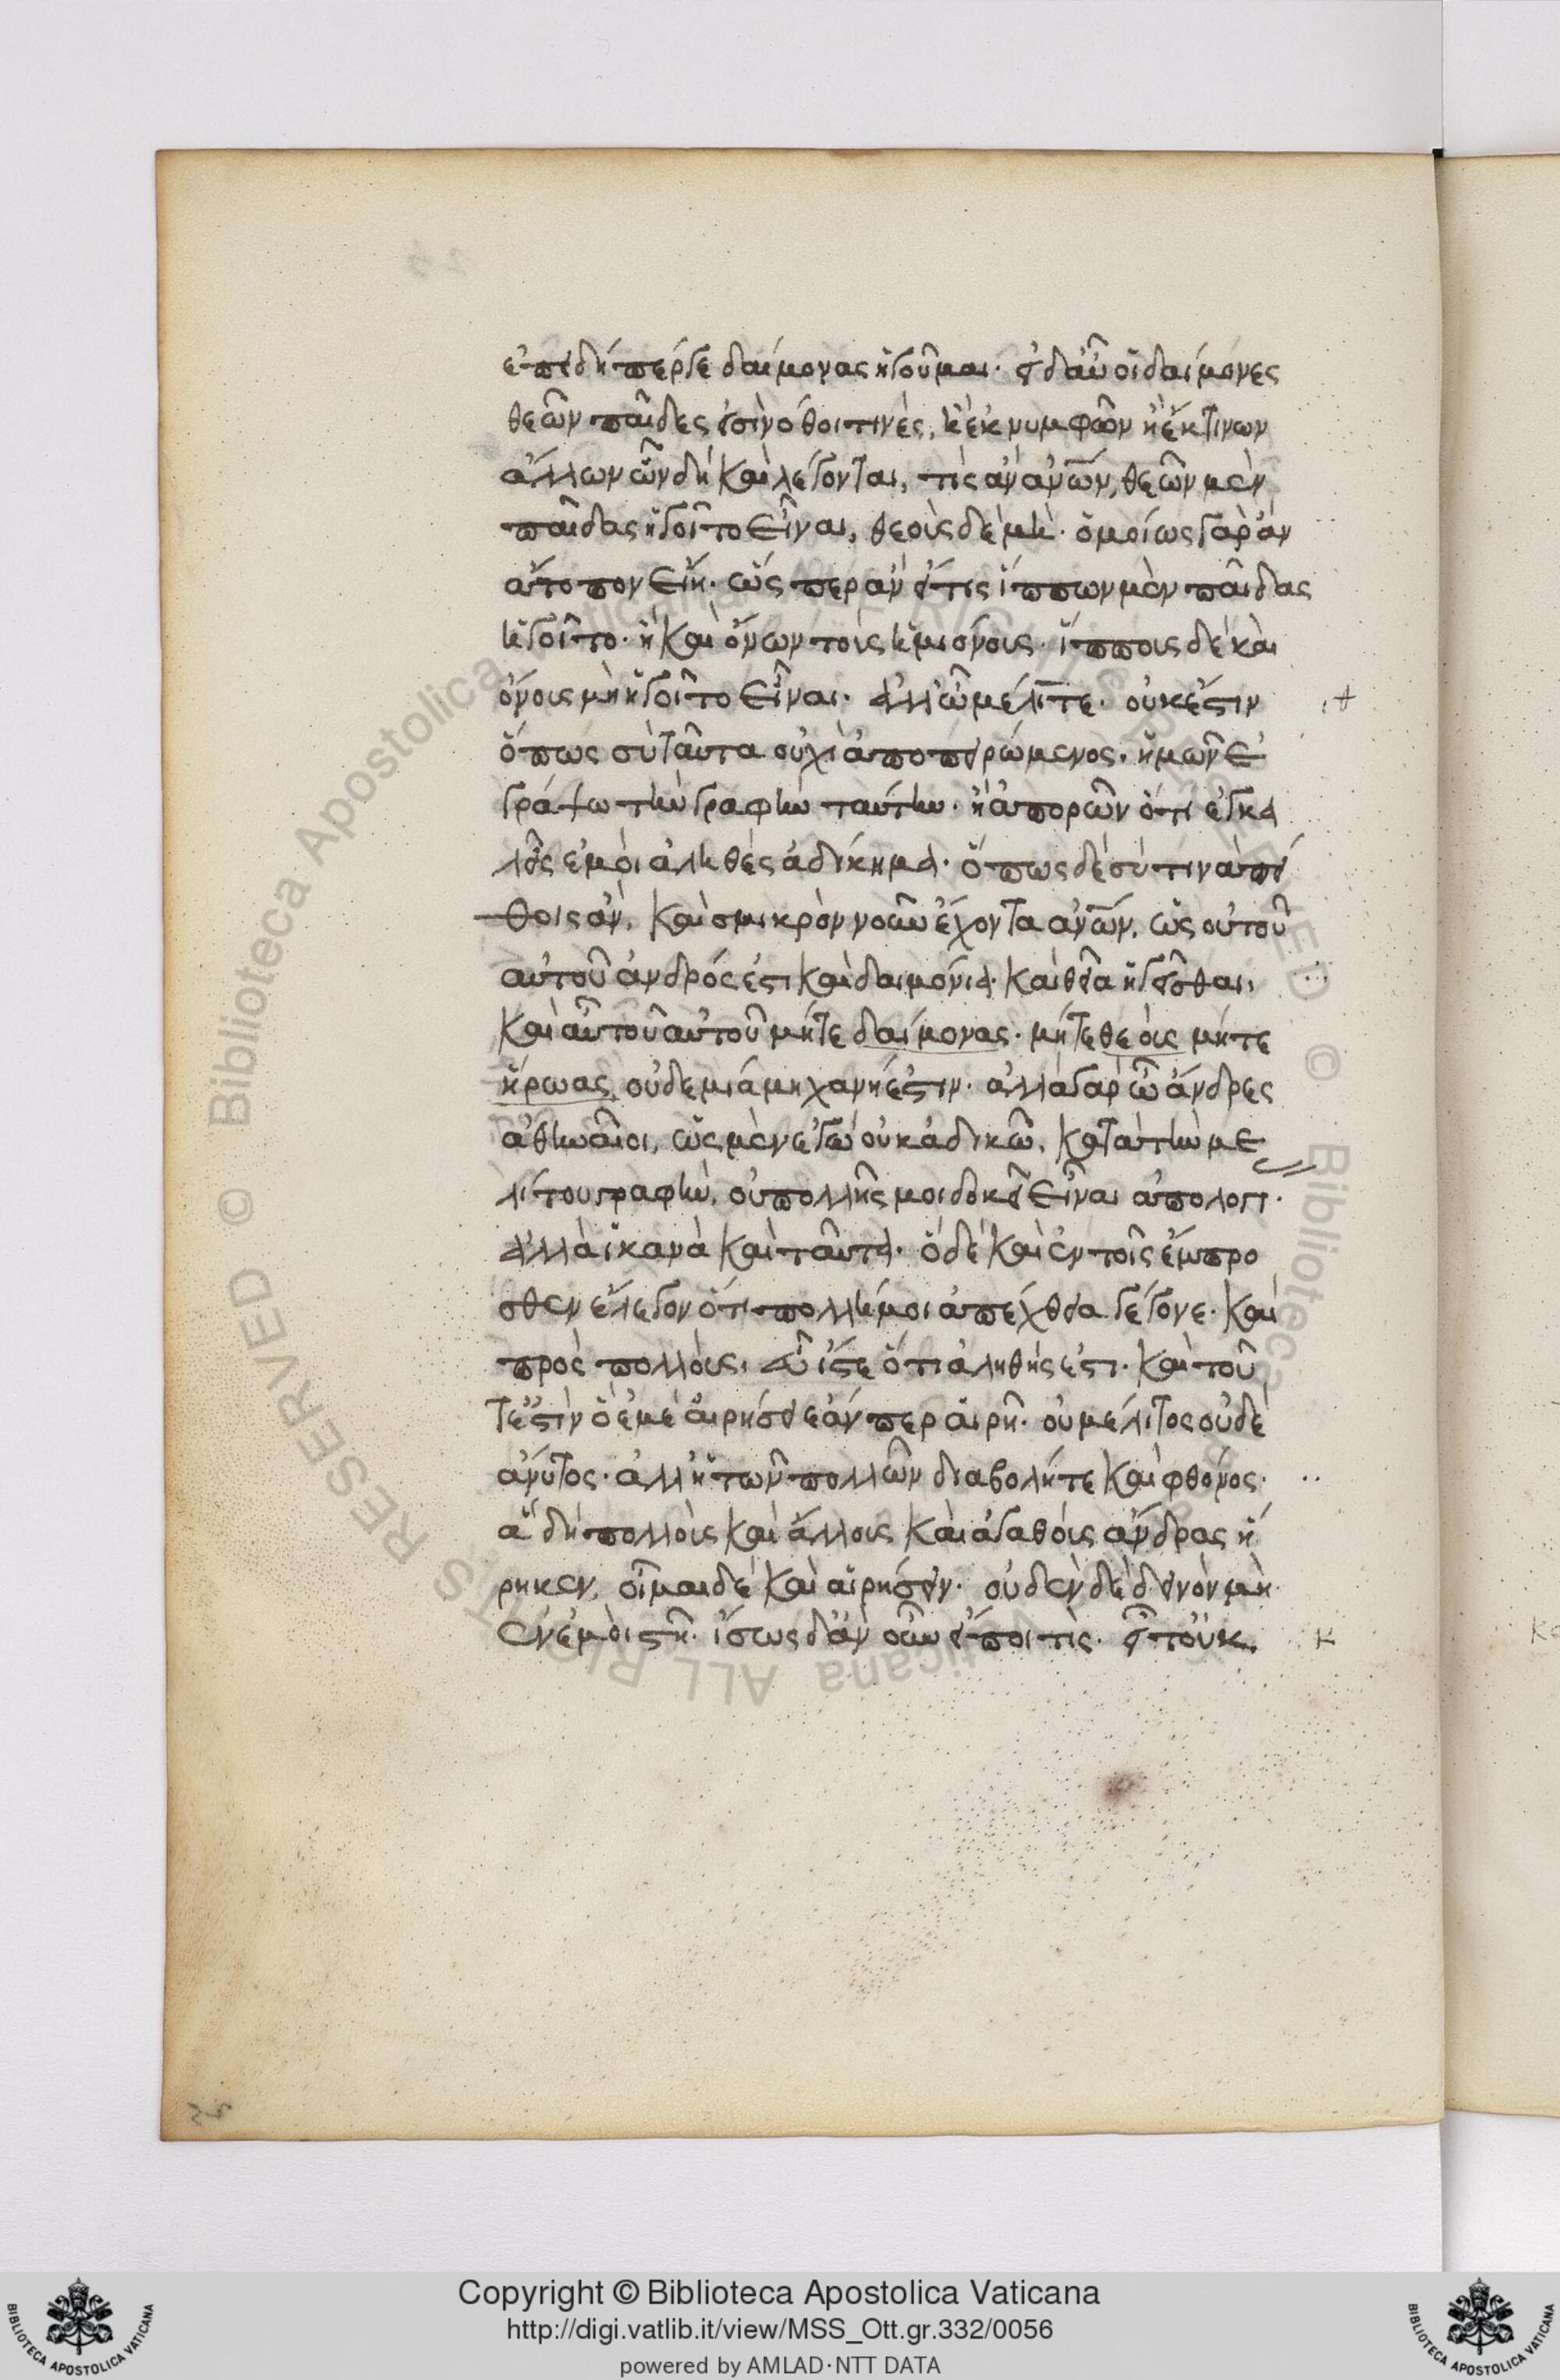 ἐπειδήπερ γε δαίμονας ἡγοῦμαι· εἰ δ' αὖ οἱ δαίμονες
θεῶν παῖδές εἰσὶ νόθοι τινὲς, ἢ ἐκ νυμφῶν ἢ ἔκ τινων
ἄλλων ὧν δὴ καὶ λέγονται, τίς ἂν ἀν̅ων, θεῶν μὲν
παῖδας ἡγοῖτο εἶναι, θεοὺς δὲ μή· ὁμοίως γὰρ ἂν
ἄτοπον εἴη· ὥσπερ ἂν εἴ τις ἵππων μὲν παῖδας
ἡγοῖτο· ἢ καὶ ὄνων τοὺς ἡμιόνους· ἵππους δὲ καὶ
ὄνους μὴ ἡγοῖτο εἶναι· ἀλλ' ὦ μέλιτε· οὐκ ἔστιν
ὅπως σὺ ταῦτα οὐχὶ ἀποπειρώμενος· ἡμῶν ἐ
γράψω τὴν γραφὴν ταύτην· ἢ ἀπορῶν ὅτι ἐγκα
λοῖς ἐμοὶ ἀληθὲς ἀδίκημα· ὅπως δὲ σύ τινα πεί
θοις ἂν, καὶ σμικρὸν νοῦν ἔχοντα ἀν̅ων, ὡς οὐ τοῦ
αὐτοῦ ἀνδρός ἐστι καὶ δαιμόνια· καὶ θεῖα ἡγεῖσθαι,
καὶ αὖ τοῦ αὐτοῦ μήτε δαίμονας· μήτε θεοὺς μήτε
ἥρωας, οὐδεμιά μηχανή ἐστιν· ἀλλὰ γὰρ ὦ ἄνδρες
ἀθηναῖοι, ὡς μὲν ἐγὼ οὐκ ἀδικῶ, κατὰ τὴν με
λίτου γραφὴν, οὐ πολλῆς μοι δοκεῖ εἶναι ἀπολογι·
ἀλλὰ ἱκανὰ καὶ ταῦτα· ὃ δὲ καὶ ἐν τοῖς ἔμπρο
σθεν ἔλεγον ὅτι πολλή μοι ἀπέχθεια γέγονε· καὶ
πρὸς πολλοὺς, εὖ ἴστε ὅτι ἀληθής ἐστι· καὶ τοῦ
τ' ἔστιν ὃ ἐμὲ αἱρήσει ἐάν περ αἱρῇ· οὐ μέλιτος οὐδὲ
ἄνυτος· ἀλλ' ἡ τῶν πολλῶν διαβολή τε καὶ φθόνος·
ἃ δὴ πολλοὺς καὶ ἄλλους καὶ ἀγαθοὺς ἄνδρας ᾕ
ρηκεν, οἶμαι δὲ καὶ αἱρήσειν· οὐδὲν δὲ δεινὸν μὴ
ἐν ἐμοὶ στῇ· ἴσως δ' ἂν οὖν εἴποι τίς· εἶτ' οὐκ
κ
Copyright © Biblioteca Apostolica Vaticana
http://digi.vatlib.it/view/MSS_Ott.gr.332/0056
powered by AMLAD·NTT DATA